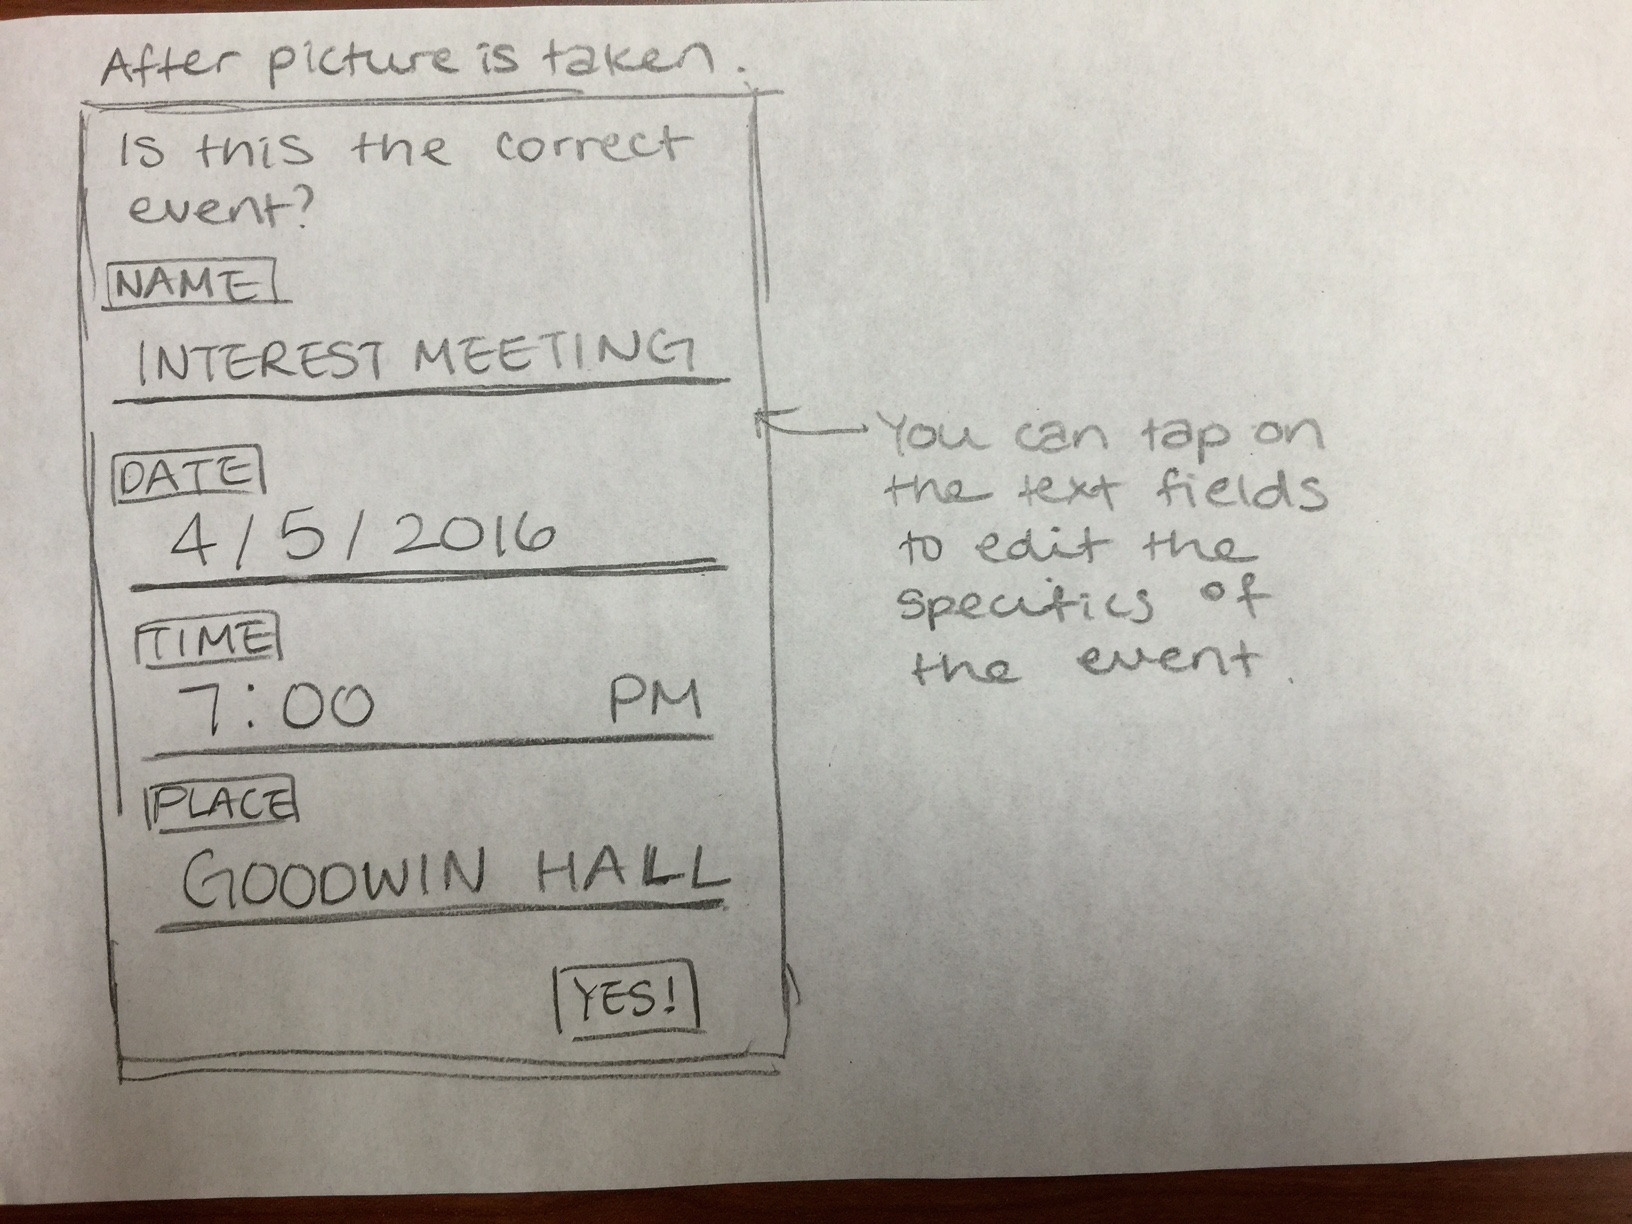 After picture is taken.
Is this the correct
event?
NAME
INTEREST MEETING
DATE
4/5/2016
TIME
7:00 PM
PLACE
GOODWIN HALL
YES!
You can tap on
the text fields
to edit the
specifics of
the event.